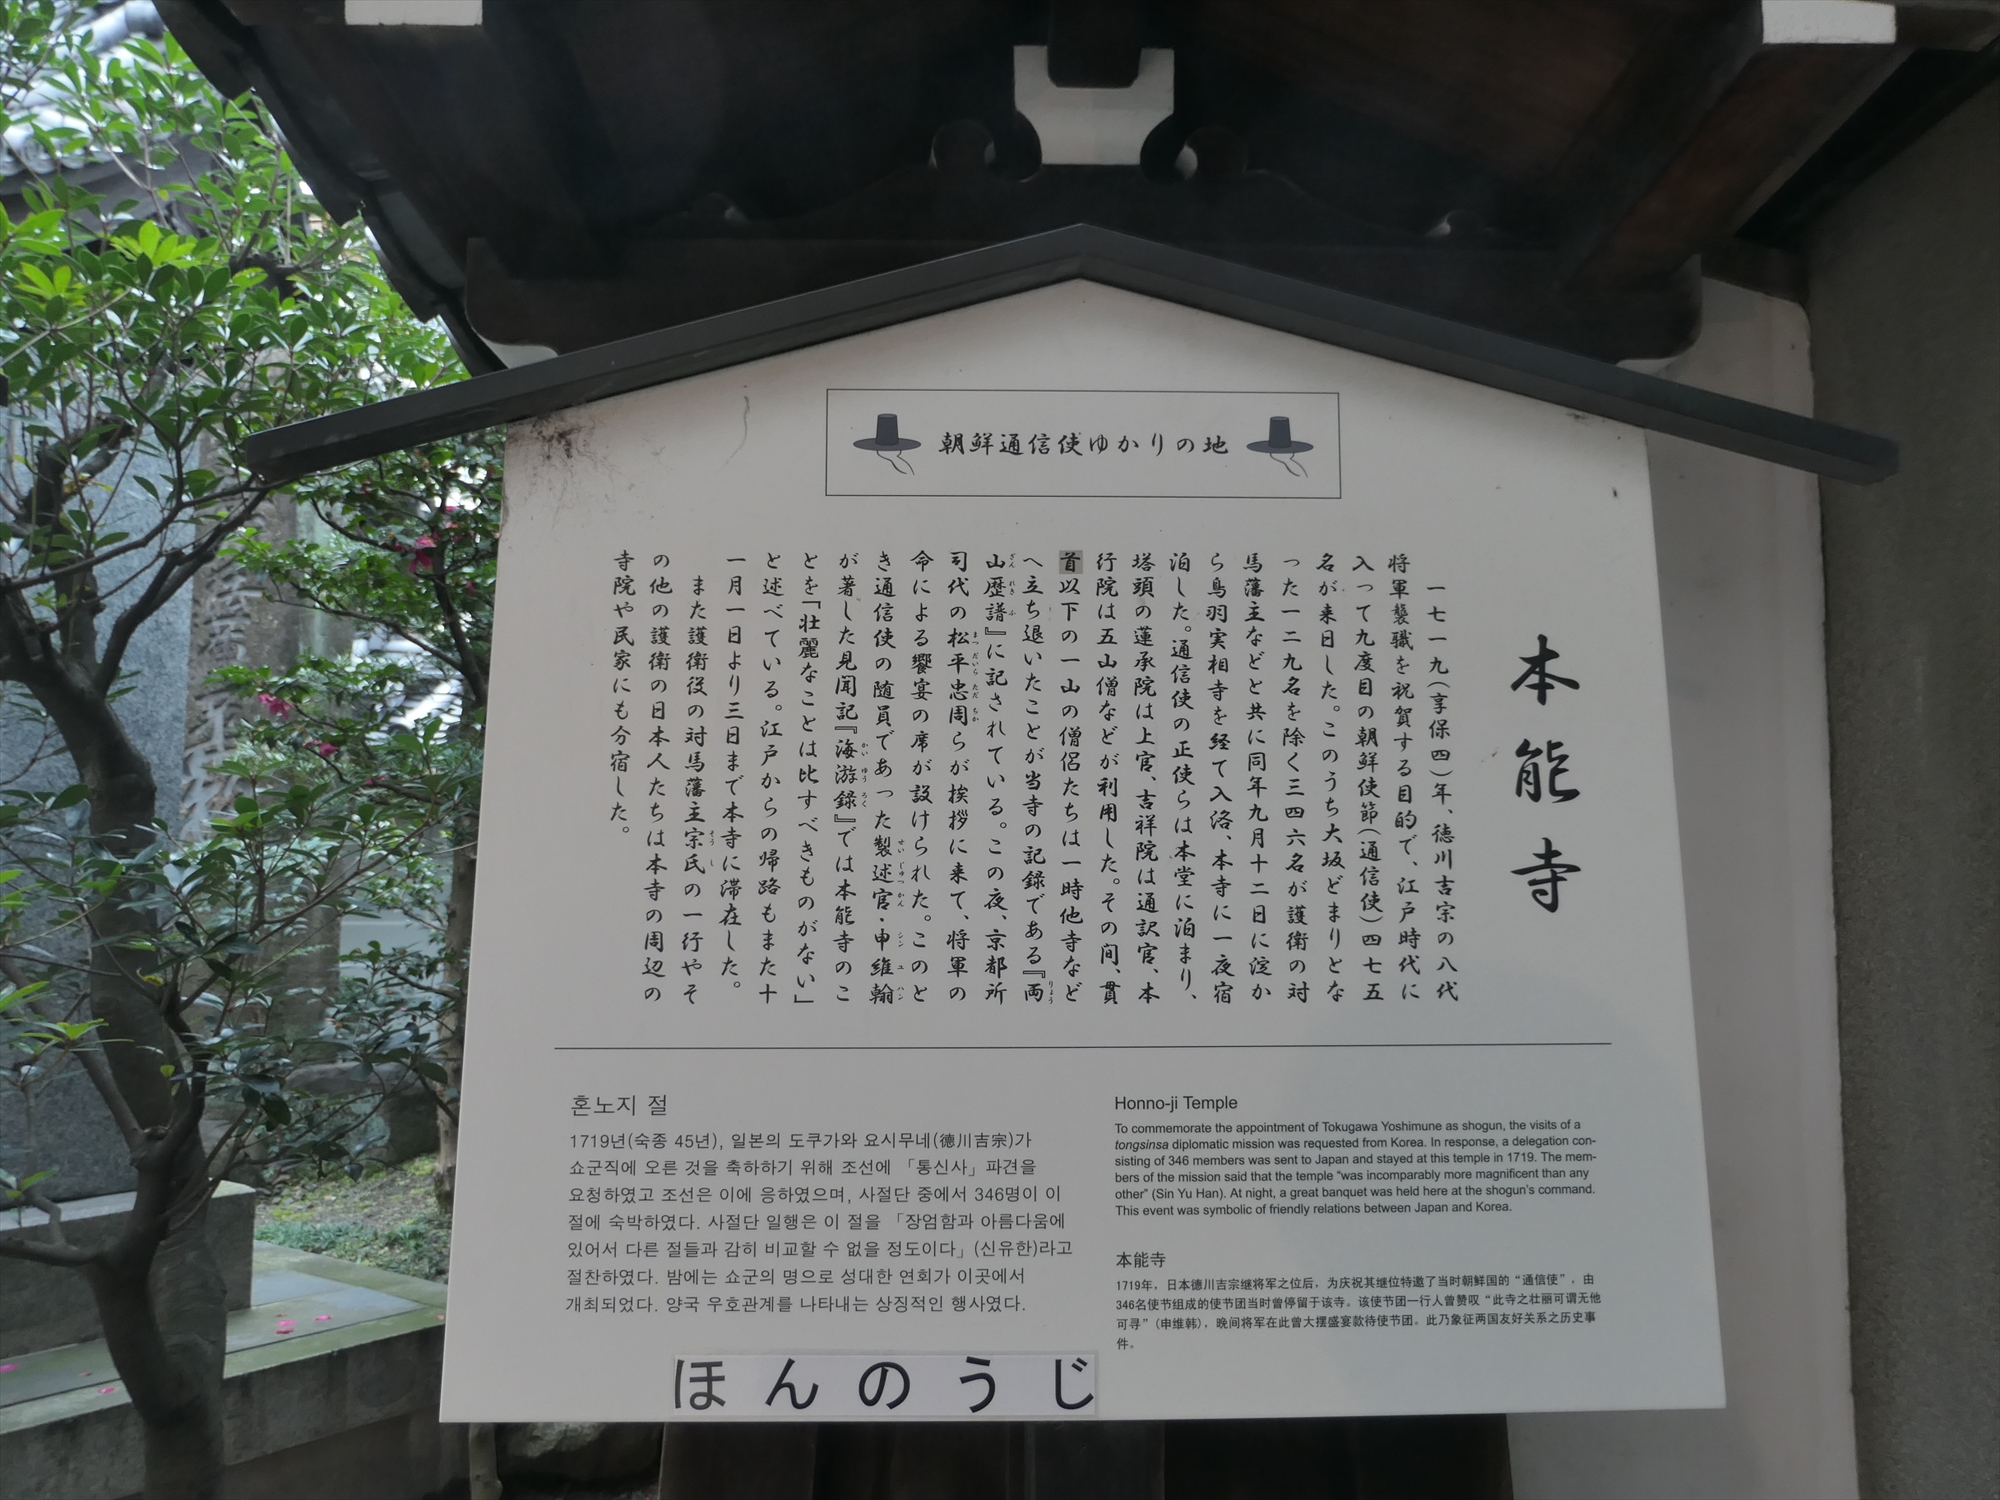 朝鮮通信使ゆかりの地
本能寺
一七一九(享保四)年、徳川吉宗の八代
将軍襲職を祝賀する目的で、江戸時代に
入って九度目の朝鮮使節(通信使)四七五
名が来日した。このうち大坂どまりとな
った一二九名を除く三四六名が護衛の対
馬藩主などと共に同年九月十二日に淀か
ら鳥羽実相寺を経て入洛、本寺に一夜宿
泊した。通信使の正使らは本堂に泊まり、
塔頭の蓮承院は上官、吉祥院は通訳官、本
行院は五山僧などが利用した。その間、貫
首以下の一山の僧侶たちは一時他寺など
へ立ち退いたことが当寺の記録である『両
山歴譜』に記されている。この夜、京都所
司代の松平忠周らが挨拶に来て、将軍の
命による饗宴の席が設けられた。このと
き通信使の随員であった製述官・申維翰
が著した見聞記『海游録』では本能寺のこ
とを「壮麗なことは比すべきものがない」
と述べている。江戸からの帰路もまた十
一月一日より三日まで本寺に滞在した。
また護衛役の対馬藩主宗氏の一行やそ
の他の護衛の日本人たちは本寺の周辺の
寺院や民家にも分宿した。
혼노지 절
1719년(숙종 45년), 일본의 도쿠가와 요시무네(德川吉宗)가
쇼군직에 오른 것을 축하하기 위해 조선에 「통신사」파견을
요청하였고 조선은 이에 응하였으며, 사절단 중에서 346명이 이
절에 숙박하였다. 사절단 일행은 이 절을 「장엄함과 아름다움에
있어서 다른 절들과 감히 비교할 수 없을 정도이다」(신유한)라고
절찬하였다. 밤에는 쇼군의 명으로 성대한 연회가 이곳에서
개최되었다. 양국 우호관계를 나타내는 상징적인 행사였다.
Honno-ji Temple
To commemorate the appointment of Tokugawa Yoshimune as shogun, the visits of a
tongsinsa diplomatic mission was requested from Korea. In response, a delegation con-
sisting of 346 members was sent to Japan and stayed at this temple in 1719. The mem-
bers of the mission said that the temple “was incomparably more magnificent than any
other” (Sin Yu Han). At night, a great banquet was held here at the shogun's command.
This event was symbolic of friendly relations between Japan and Korea.
本能寺
1719年，日本德川吉宗继将军之位后，为庆祝其继位特邀了当时朝鲜国的“通信使”，由
346名使节组成的使节团当时曾停留于该寺。该使节团一行人曾赞叹“此寺之壮丽可谓无他
可寻”(申维韩)，晚间将军在此曾大摆盛宴款待使节团。此乃象征两国友好关系之历史事
件。
ほんのうじ